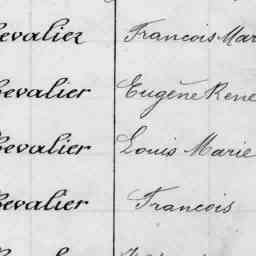 evalier Francois Mar
evalier Eugène Rene
evalier Louis Marie
evalier Francois